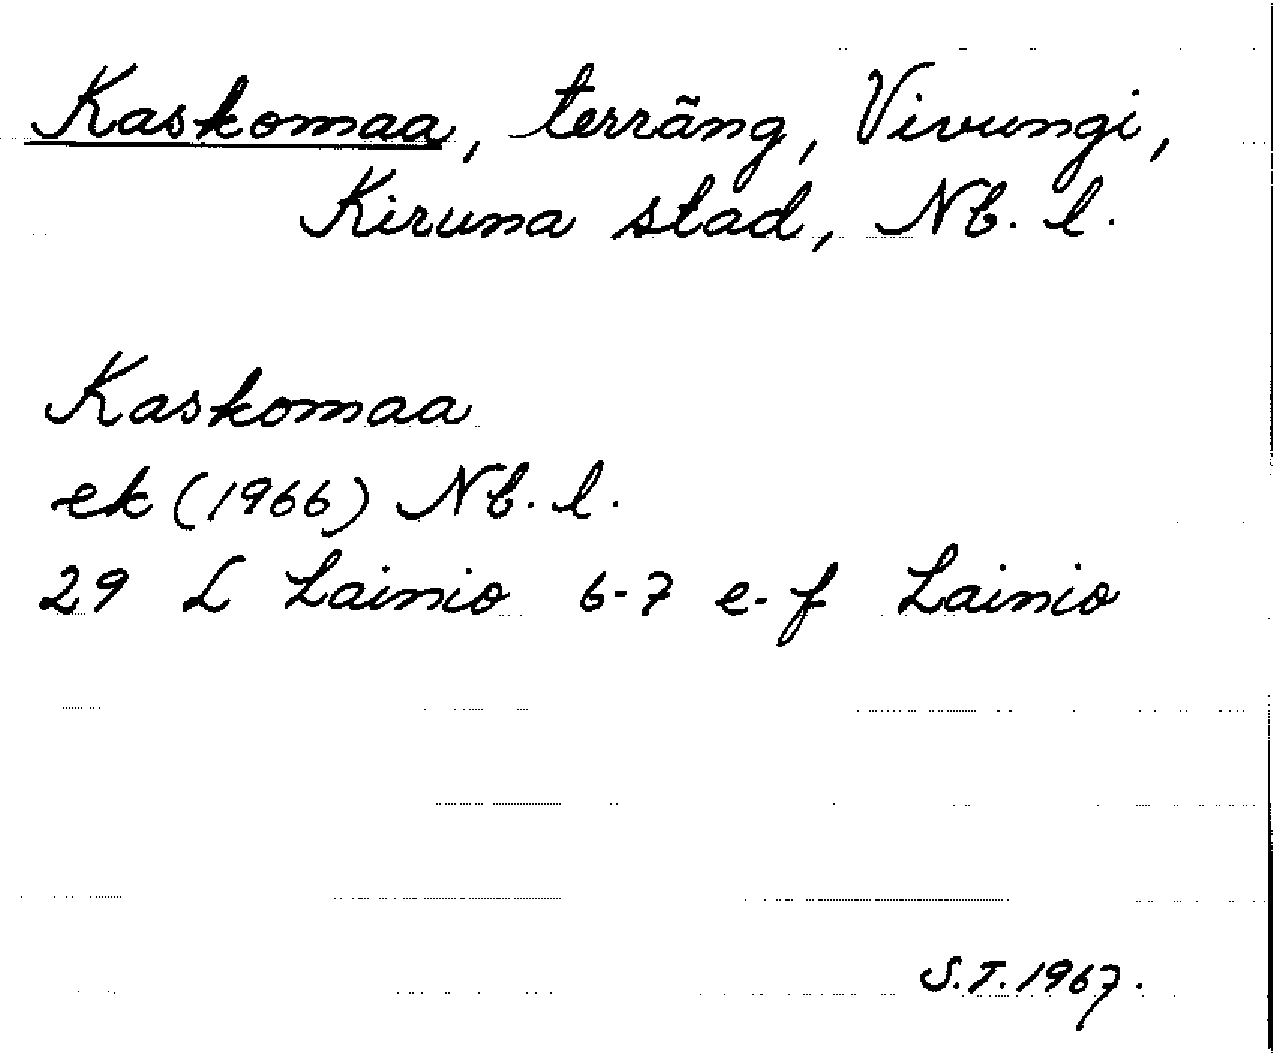 Kaskomaa, terräng, Vivungi,
Kiruna stad, Nb. l.
Kaskomaa
ek (1966) Nb. l.
29 L Lainio 6-7 e-f Lainio
S.T. 1967.